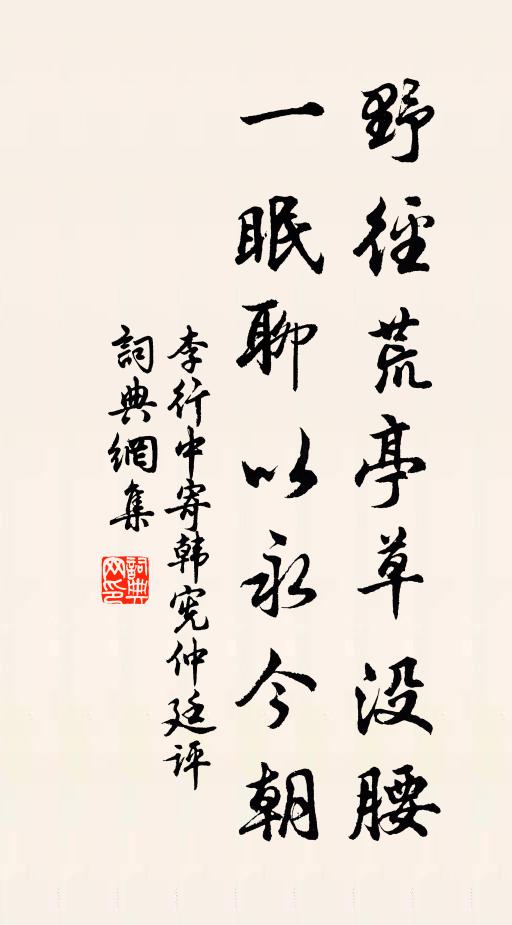 野徑荒亭草没腰
一眠聊以永今朝
李行中寄韩宪仲廷评
詞典網集
詞典網印